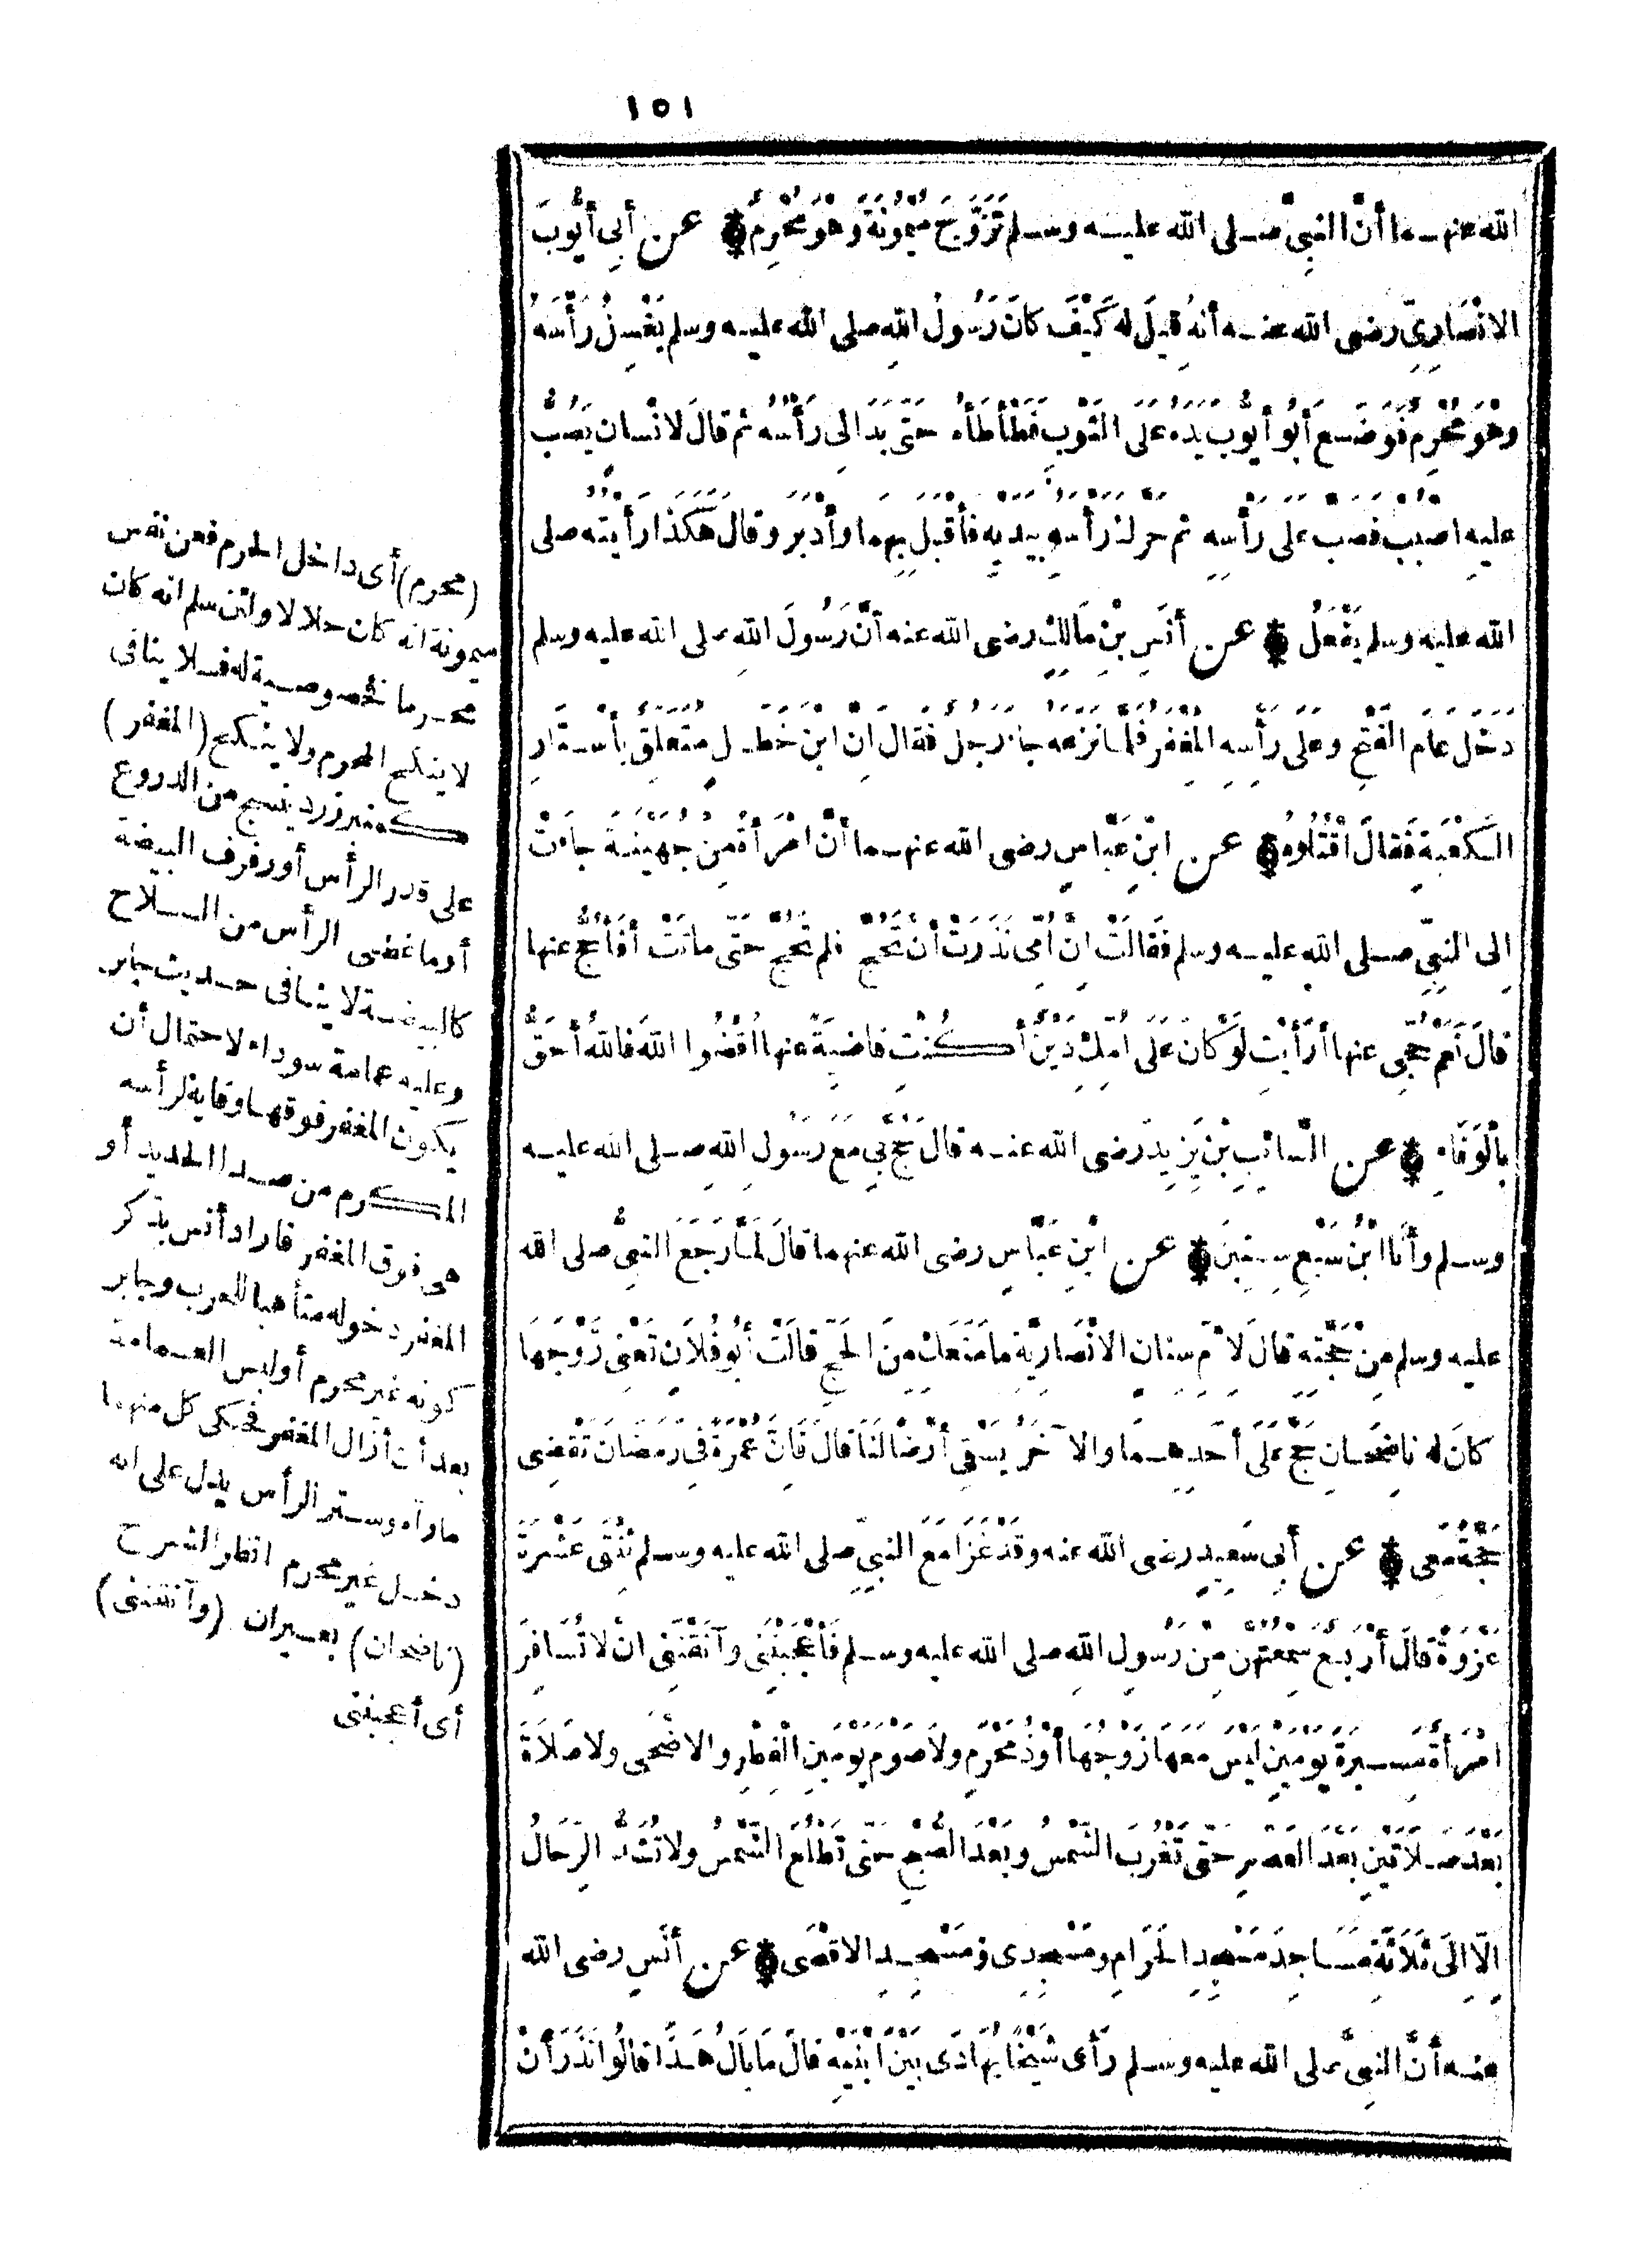 ١٥١
الله عنهما أنَّ النبيَّ صلى الله عليه وسلم تَزَوَّجَ مَيْمُونَةَ وَهْوَ مُحْرِمٌ عن أبي أيُّوبَ
الانْصَارِيِّ رضى الله عنه أنهُ قِيلَ له كَيْفَ كانَ رَسُولُ اللهِ صلى الله عليه وسلم يَغْسِلُ رَأْسَهُ
وهْوَ مُحْرِمٌ فَوَضَعَ أَبُو أيُّوبَ يَدَهُ عَلَى الثَّوْبِ فَطَأْطَأَهُ حَتَّى بَدَا لِي رَأْسُهُ ثم قالَ لاِنْسانٍ يَصُبُّ
عليهِ اصْبُبْ فصَبَّ على رَأْسِهِ ثم حَرَّكَ رَأْسَهُ بِيَدَيْهِ فأَقْبَلَ بِهِما وأَدْبَرَ وقالَ هَكَذَا رَأَيْتُه صلى
الله عليه وسلم يَفْعَلُ عن أنَسِ بنِ مَالِكٍ رضى الله عنه أنَّ رَسُولَ اللهِ صلى الله عليه وسلم
دَخَلَ عَامَ الفَتْحِ وعلى رَأْسِهِ المِغْفَرُ فَلَمَّا نَزَعَهُ جاءَ رَجُلٌ فَقالَ إنَّ ابنَ خَطَلٍ مُتَعَلِّقٌ بأَسْتَارِ
الكَعْبَةِ فَقالَ اقْتُلُوهُ عن ابْنِ عَبَّاسٍ رضى الله عنهما أنَّ امْرَأَةً مِنْ جُهَيْنَةَ جاءَتْ
إلى النبيِّ صلى الله عليه وسلم فقالَتْ إنَّ أُمِّي نَذَرَتْ أنْ تَحُجَّ فلم تَحُجَّ حَتَّى ماتَتْ أفَأَحُجُّ عنها
قالَ نَعَمْ حُجِّى عنها أرَأَيْتِ لَوْ كانَ عَلَى أُمِّكِ دَيْنٌ أكُنْتِ قاضِيَةً عنها اقْضُوا اللهَ فاللهُ أحَقُّ
بالْوَفَاءِ عن السَّائِبِ بْنِ يَزِيدَ رضى الله عنه قالَ حُجَّ بِي مَعَ رَسُولِ اللهِ صلى الله عليه
وسلم وأنَا ابْنُ سَبْعِ سِنِينَ عن ابْنِ عَبَّاسٍ رضى الله عنهما قالَ لَمَّا رَجَعَ النبيُّ صلى الله
عليه وسلم مِنْ حَجَّتِهِ قالَ لأُمِّ سِنَانٍ الانْصَارِيَّةِ ما مَنَعَكِ مِنَ الحَجِّ قالَتْ أبُو فُلاَنٍ تَعْنِي زَوْجَهَا
كانَ له ناضِحَانِ حَجَّ عَلَى أحَدِهِمَا والآخَرُ يَسْقِى أرْضًا لنَا قالَ فَإنَّ عُمْرَةً فِى رَمَضَانَ تَقْضِى
حَجَّةً مَعِى عن أبى سَعِيدٍ رضى الله عنه وقَدْ غَزَا مَعَ النبيِّ صلى الله عليه وسلم ثِنْتَى عَشْرَةَ
غَزْوَةً قالَ أرْبَعٌ سَمِعْتُهُنَّ مِنْ رَسُولِ اللهِ صلى الله عليه وسلم فَأَعْجَبْنَنِى وآنَقْنَنِى أنْ لا تُسَافِرَ
امْرَأَةٌ مَسِيرَةَ يَوْمَيْنِ لَيْسَ مَعَهَا زَوْجُهَا أوْ ذُو مَحْرَمٍ ولاَ صَوْمَ يَوْمَيْنِ الْفِطْرِ والاضْحَى ولا صَلاَةَ
بَعْدَ صَلاَتَيْنِ بَعْدَ العَصْرِ حَتَّى تَغْرُبَ الشَّمْسُ وبَعْدَ الصُّبْحِ حَتَّى تَطْلُعَ الشَّمْسُ ولا تُشَدُّ الرِّحَالُ
إلاَّ إلَى ثَلاَثَةِ مَسَاجِدَ مَسْجِدِ الحَرَامِ ومَسْجِدِى ومَسْجِدِ الاقْصَى عن أنَسٍ رضى الله
عنه أنَّ النبيَّ صلى الله عليه وسلم رَأَى شَيْخًا يُهَادَى بَيْنَ ابْنَيْهِ قالَ ما بَالُ هَذَا قالُوا نَذَرَ أنْ
(محرم) أى داخل الحرم فعن نفس
ميمونة انه كان حلالا ولئن سلم انه كان
محرما فخصوصية له فلا ينافى
لا ينكح المحرم ولا ينكح (المغفر)
كمنبر زرد ينسج من الدروع
على قدر الرأس أو رفرف البيضة
أو ما غطى الرأس من السلاح
كالبيضة لا ينافى حديث جابر
وعليه عمامة سوداء لاحتمال أن
يكون المغفر فوقها وقاية لرأسه
المكرم من صدا الحديد أو
هى فوق المغفر فاراد أنس بذكر
المغفر دخوله متأهبا للحرب وجابر
كونه غير محرم أو لبس العمامة
بعد أن أزال المغفر فحكى كل منهما
ما رآه وستر الرأس يدل على انه
دخل غير محرم انظر الشرح
(ناضحان) بعيران (وآنقننى)
أى أعجبننى